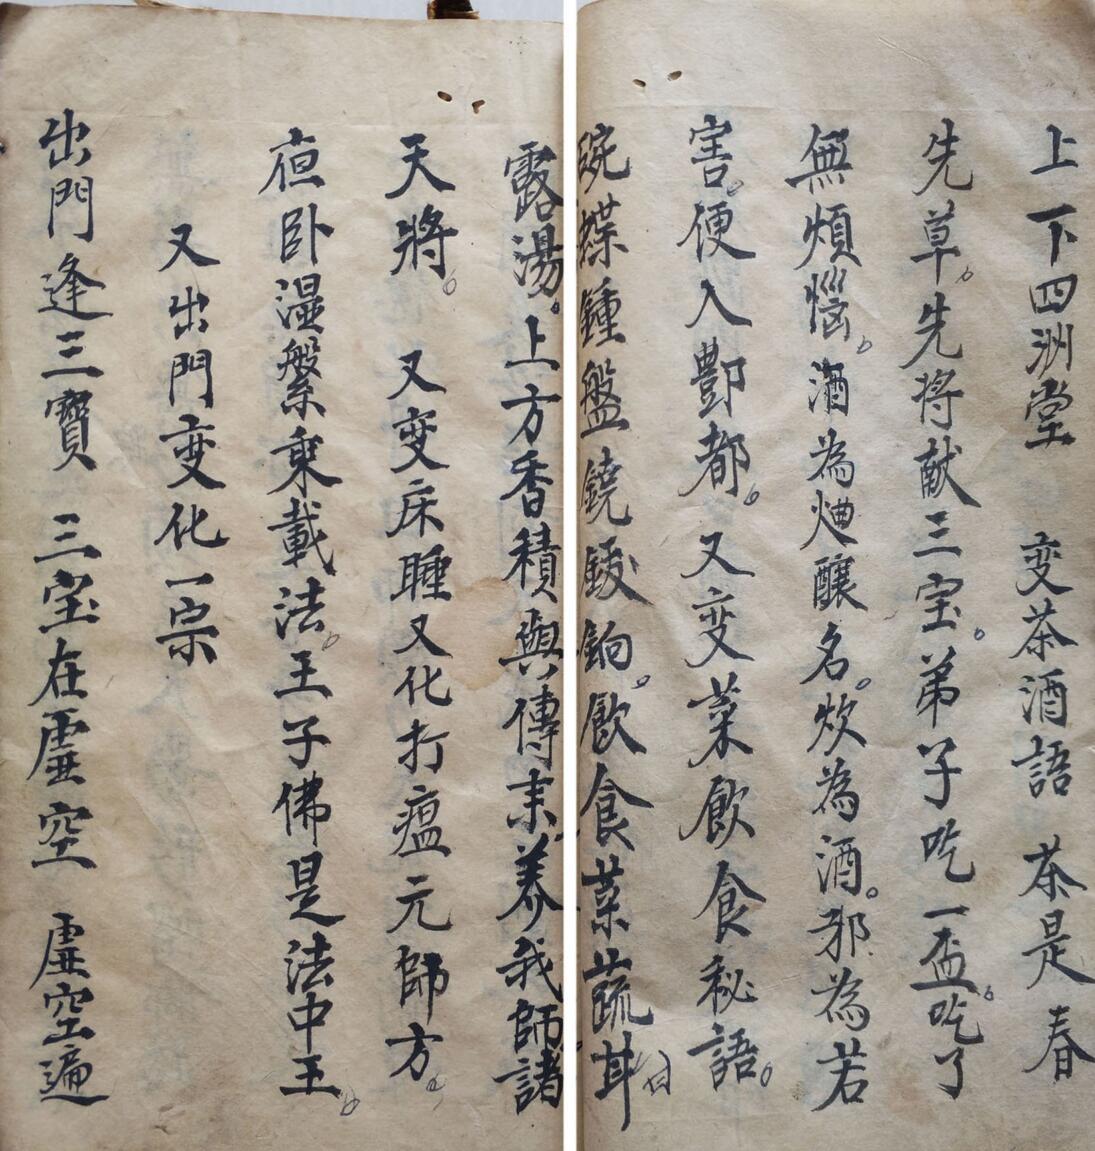 上下四洲堂 变茶酒語 茶是春
先草。先將献三宝。弟子吃一盃。吃了
無煩惱。酒為煙釀名。炊為酒。邪為若
害。便入酆都。又变菜飲食秘語。
碗蝶鍾盤鐃鈸銅。飲食菜蔬耳
露湯。上方香積與傳来养我師諸
天將。 又变床睡又化打瘟元師方。
夜卧湿槃乘載法。王子佛是法中王。
又出門变化一宗
出門逢三寶 三宝在虛空 虛空遍